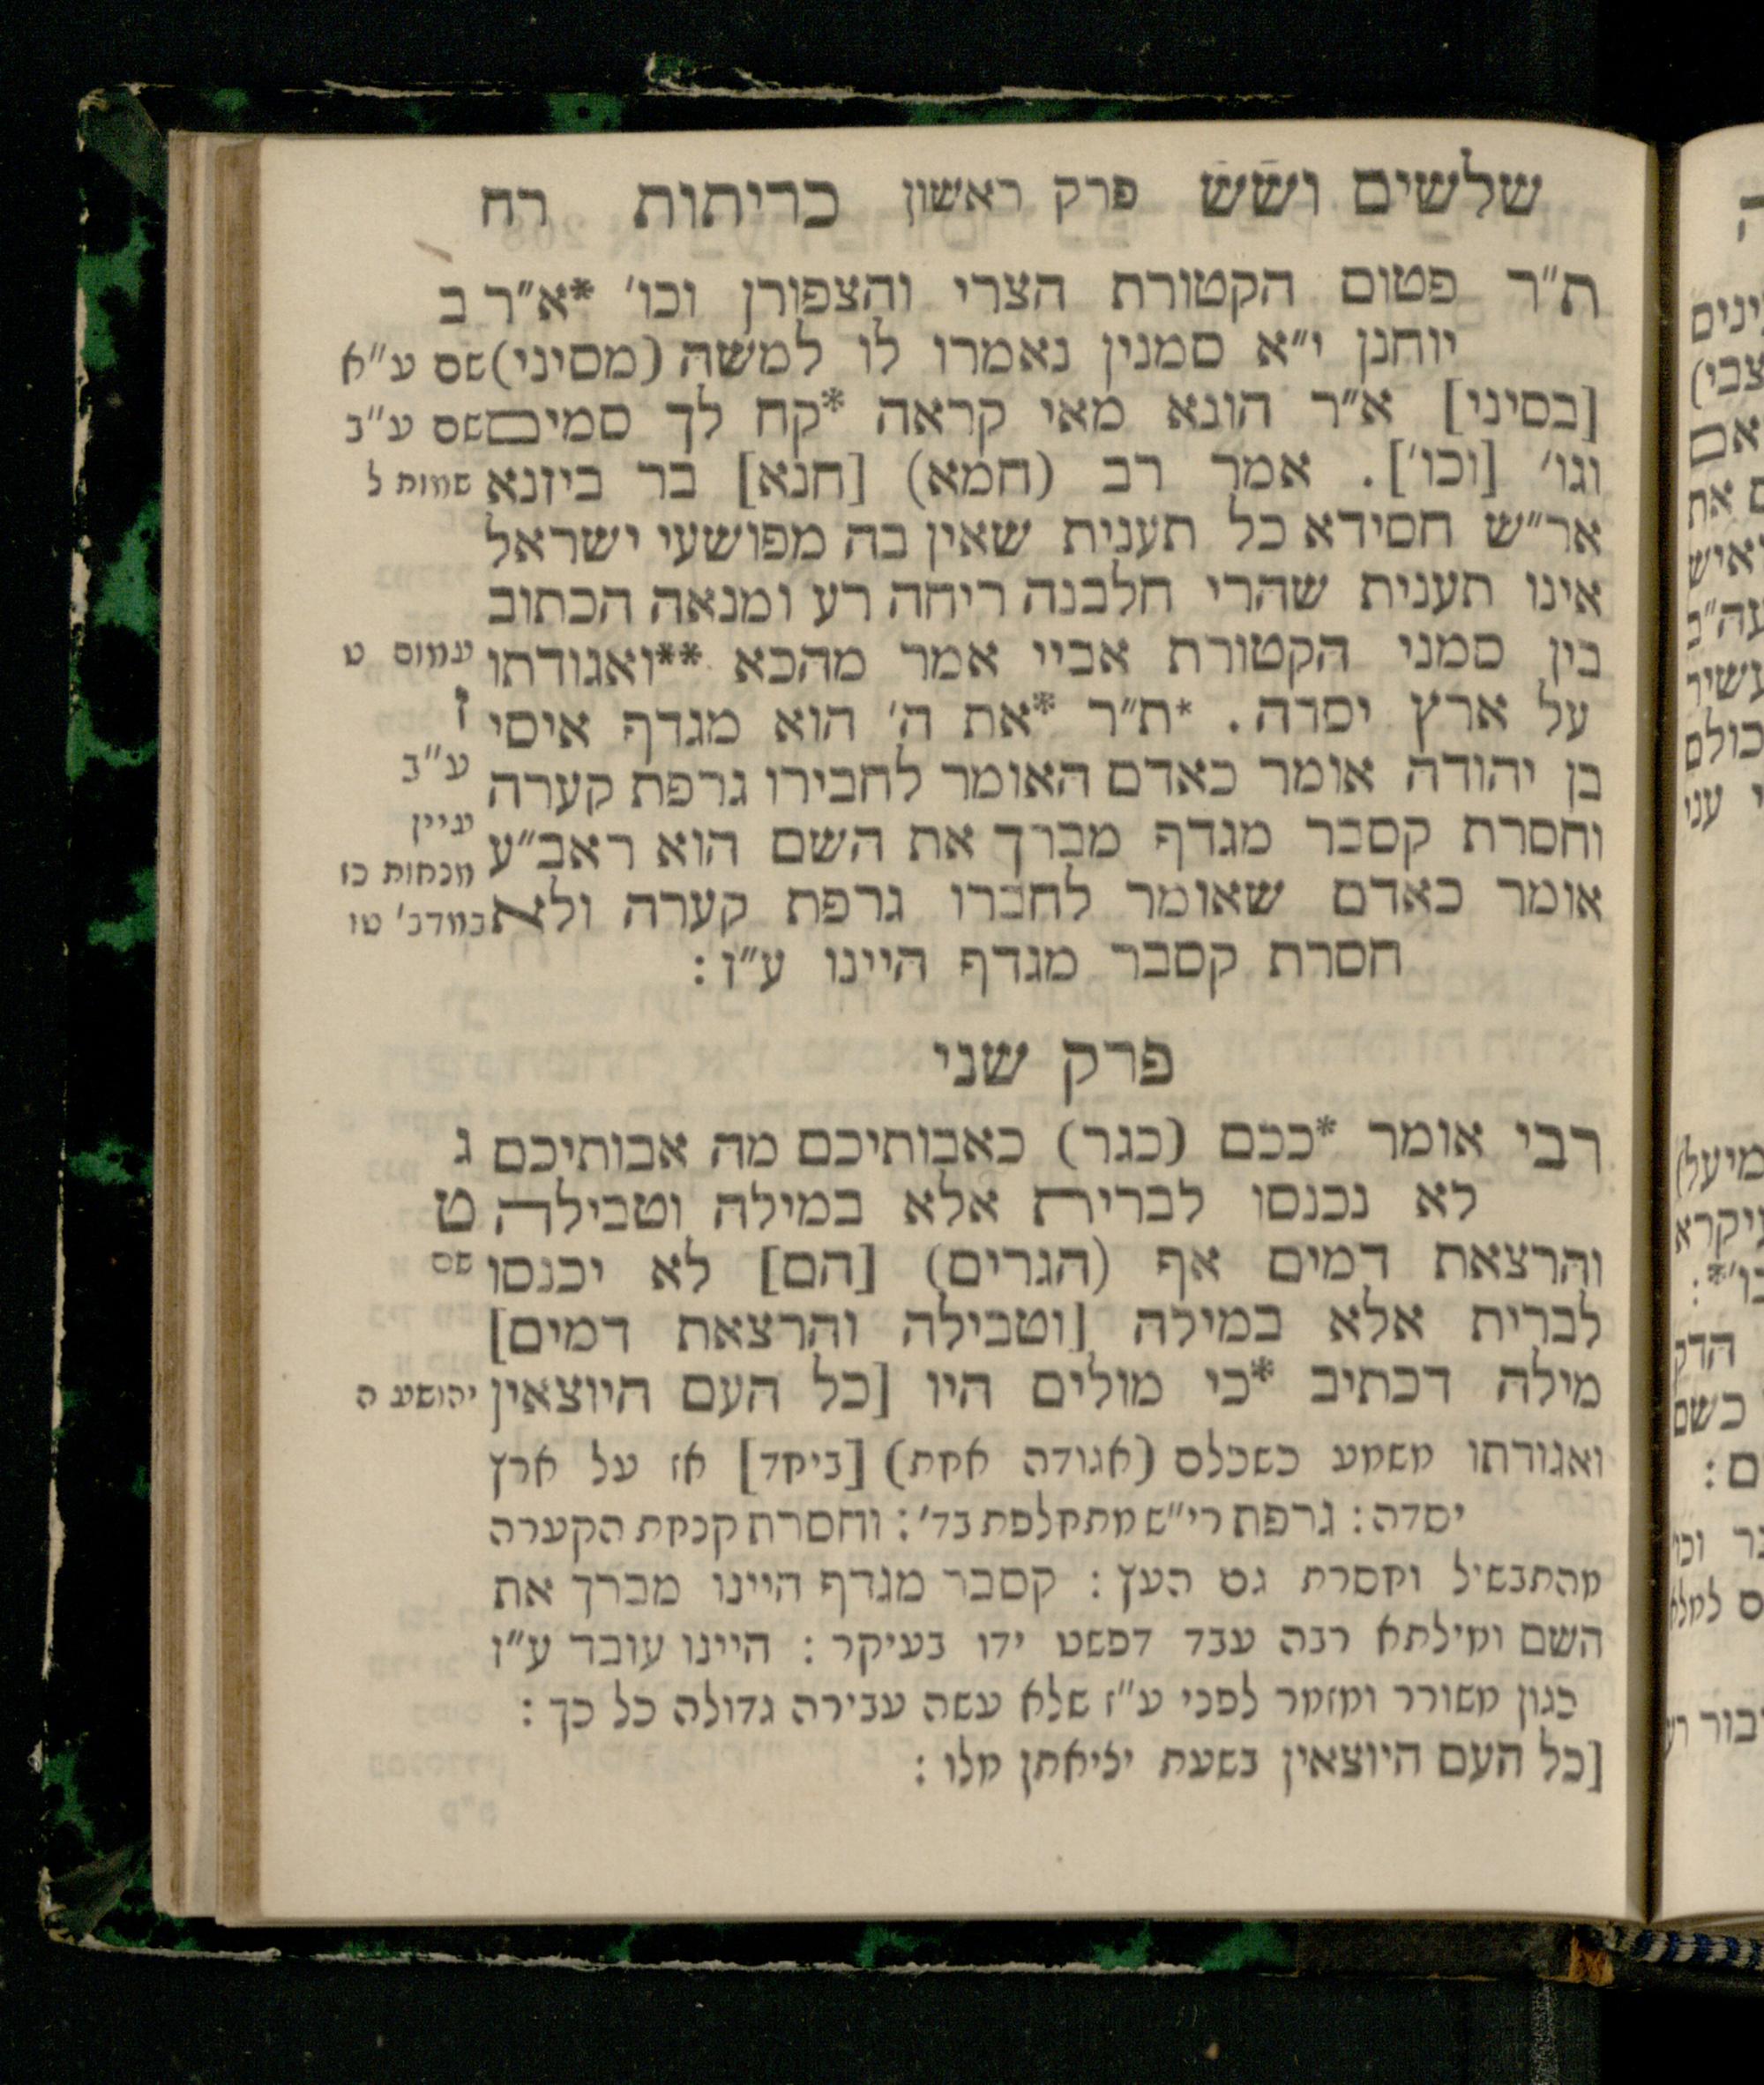 שלשים ושש פרק ראשון כריתות רח
ת״ר פטום הקטורת הצרי והצפורן וכו׳ *א״ר ב
יוחנן י״א סמנין נאמרו לו למשה (מסיני) שם ע״א
[בסיני] א״ר הונא מאי קראה *קח לך סמים שם ע״ב
וגו׳ [וכו׳]. אמר רב (חמא) [חנא] בר ביזנא שמות ל
אר״ש חסידא כל תענית שאין בה מפושעי ישראל
אינו תענית שהרי חלבנה ריחה רע ומנאה הכתוב
בין סמני הקטורת אביי אמר מהכא **ואגודתו עמוס ט
על ארץ יסדה. *ת״ר *את ה׳ הוא מגדף איסי ז
בן יהודה אומר כאדם האומר לחבירו גרפת קערה ע״ב
וחסרת קסבר מגדף מברך את השם הוא ראב״ע עיין
מנחות כז
אומר כאדם שאומר לחברו גרפת קערה ולא במדב׳ טו
חסרת קסבר מגדף היינו ע״ז:
פרק שני
רבי אומר *ככם (כגר) כאבותיכם מה אבותיכם ג
לא נכנסו לברית אלא במילה וטבילה ט
והרצאת דמים אף (הגרים) [הם] לא יכנסו שם
לברית אלא במילה [וטבילה והרצאת דמים]
מילה דכתיב *כי מולים היו [כל העם היוצאין יהושע ה
ואגודתו משמע כשכלם (אגודה אחת) [ביחד] אז על ארץ
יסדה: גרפת רי״ש מתחלפת בד׳: וחסרת קנחת הקערה
מהתבשיל וחסרת גם העץ: קסבר מגדף היינו מברך את
השם ומילתא רבה עבד דפשט ידו בעיקר: היינו עובד ע״ז
כגון משורר ומזמר לפני ע״ז שלא עשה עבירה גדולה כל כך:
[כל העם היוצאין בשעת יציאתן מלו: